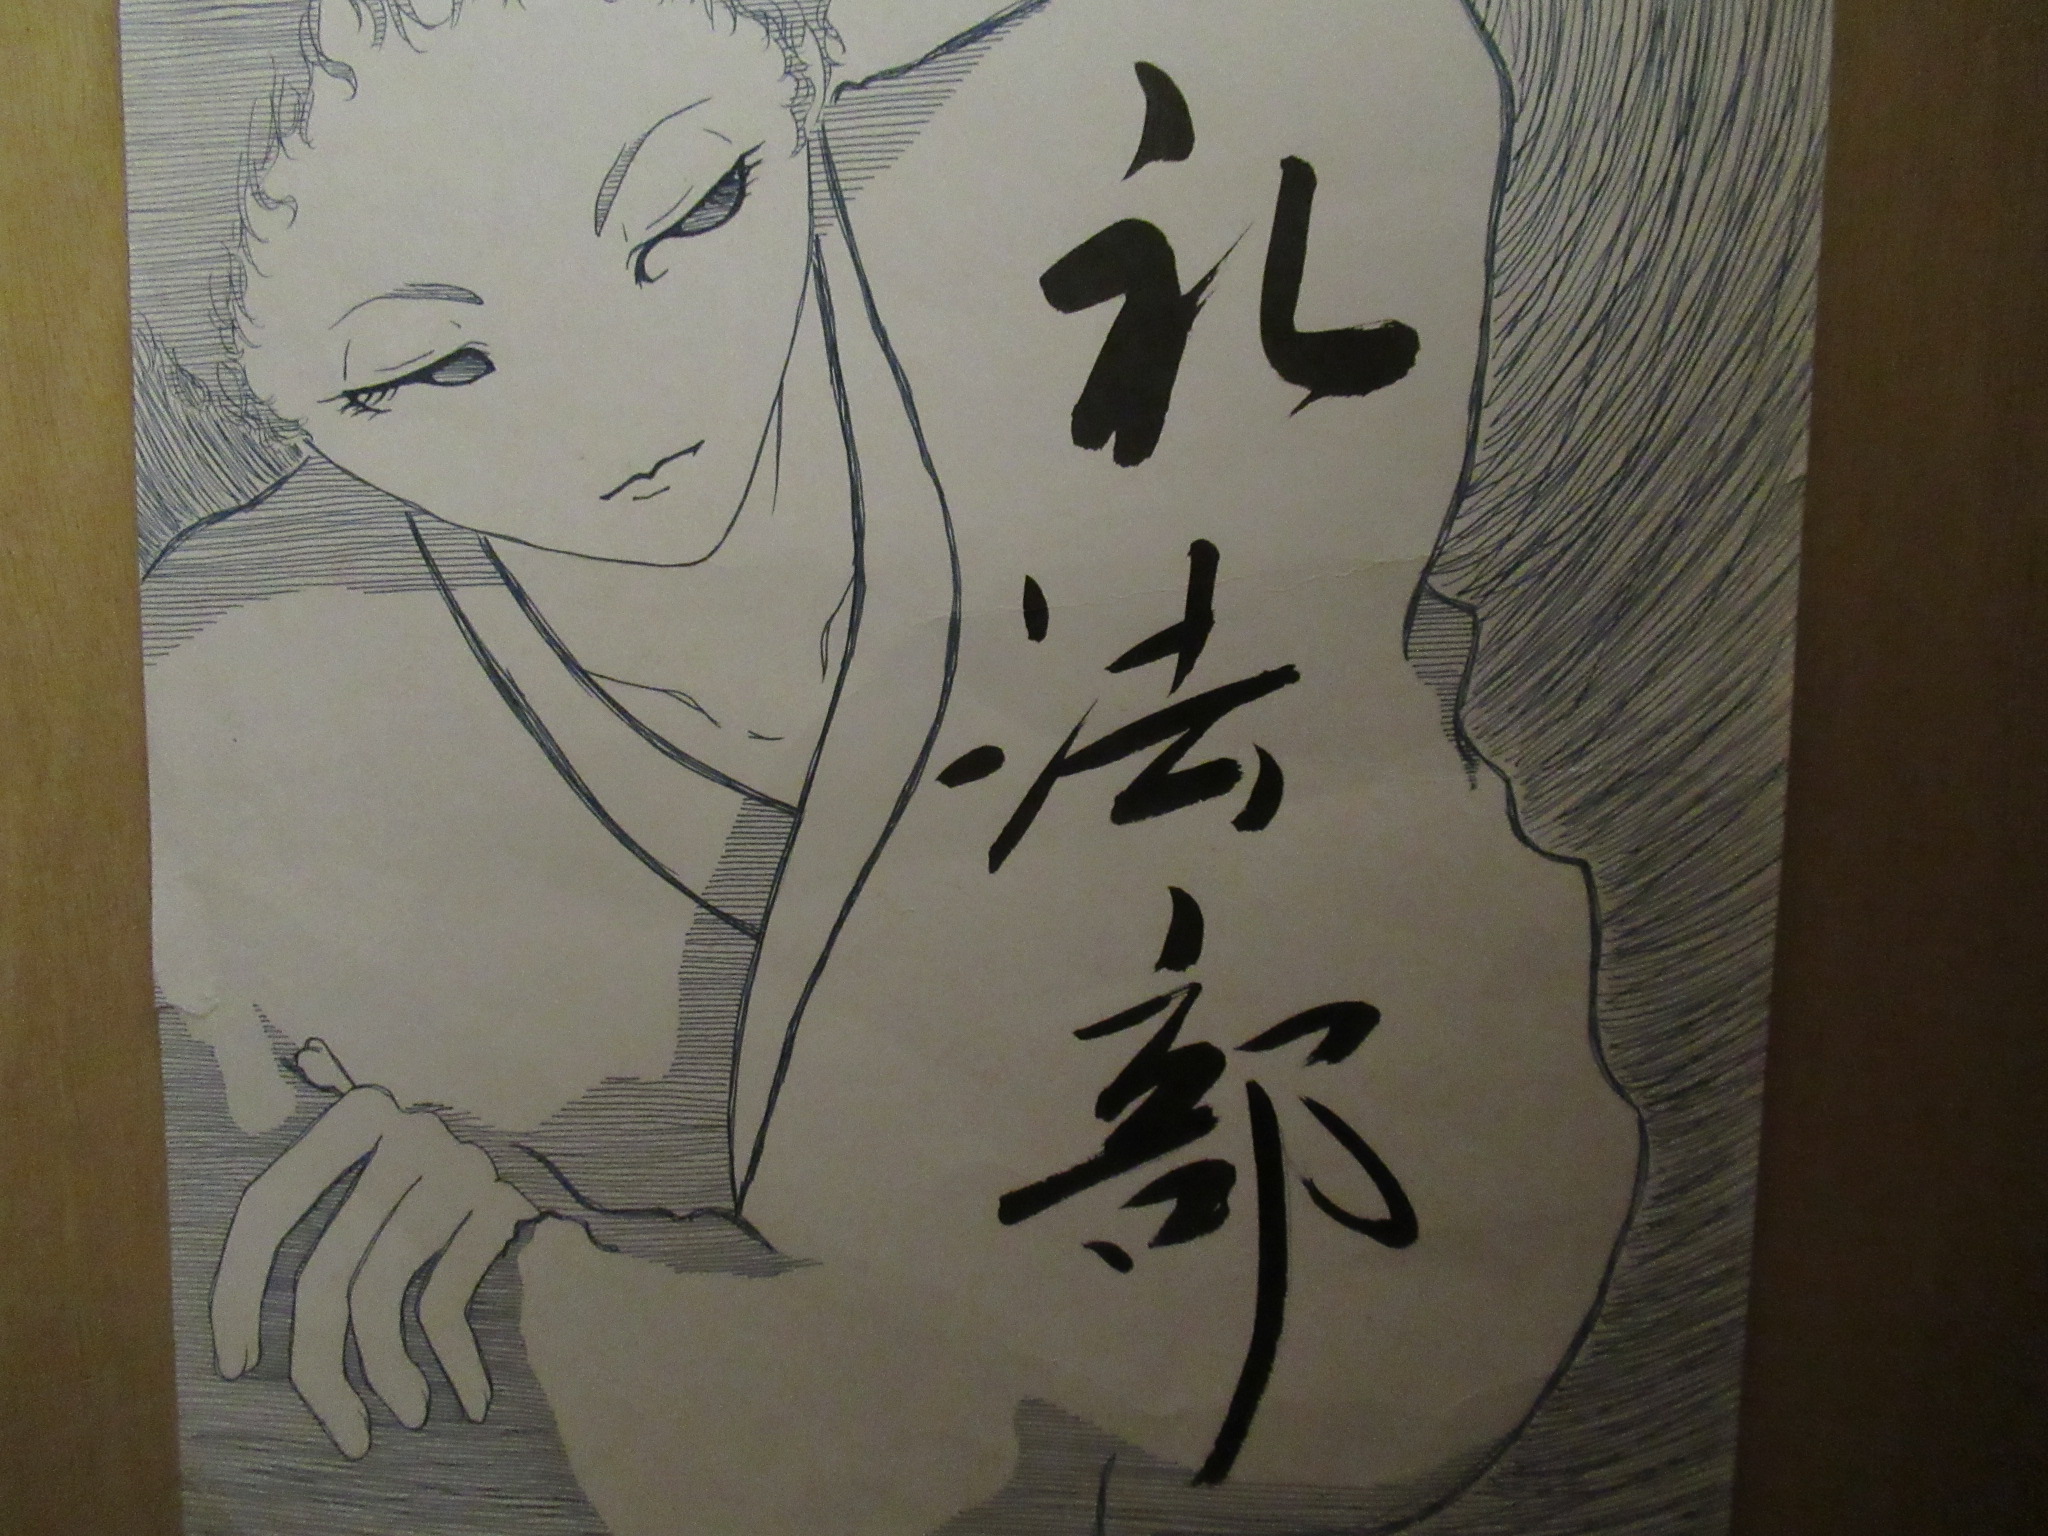 礼法部